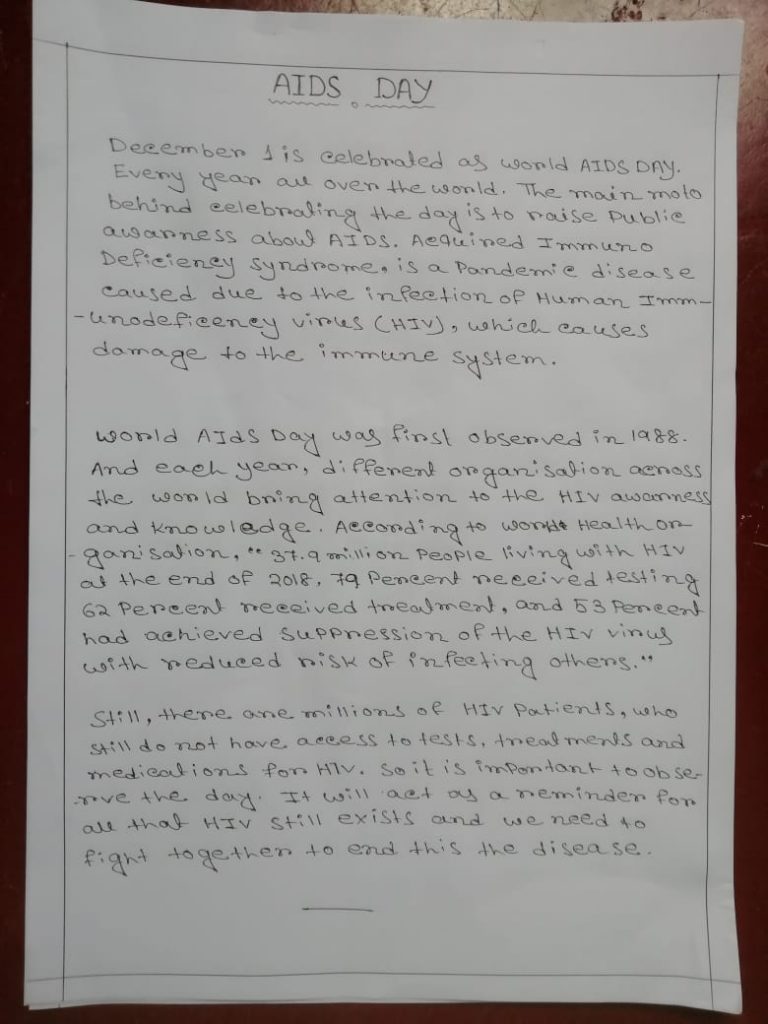 AIDS DAY
December 1 is celebrated as world AIDS DAY.
Every year all over the world. The main moto
behind celebrating the day is to raise Public
awarness about AIDS. Acquired Immuno
Deficiency Syndrome, is a Pandemic disease
caused due to the infection of Human Imm-
-unodeficency virus (HIV), which causes
damage to the immune system.
World AIdS Day was first observed in 1988.
And each year, different organisation across
the world bring attention to the HIV awarness
and knowledge. According to World Health or
-ganisation, "37.9 million People living with HIV
at the end of 2018, 79 Percent received testing
62 Percent received treatment, and 53 Percent
had achieved suppression of the HIV virus
with reduced risk of infecting others."
Still, there are millions of HIV Patients, who
still do not have access to tests, treatments and
medications for HIV. So it is important to obse-
-rve the day. It will act as a reminder for
all that HIV still exists and we need to
fight together to end this the disease.